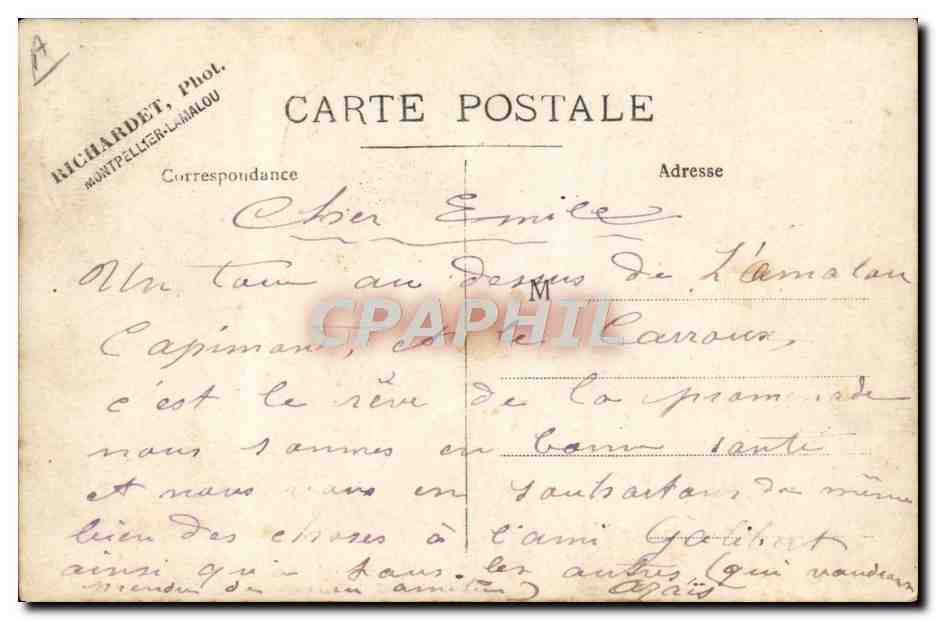 A
RICHARDET, Phot.
MONTPELLIER-LAMALOU
CARTE POSTALE
Correspondance
Adresse
Cher Emile
Un tour au dessus de L'amalou
M
CPAPHIL
Capimont, et le Carroux,
c'est le rêve de la promenade
nous sommes en bonne santé
et nous vous en souhaitons de même
bien des choses à l'ami Galibert
ainsi qu'a tous les autres (qui voudront
de mon amitié)